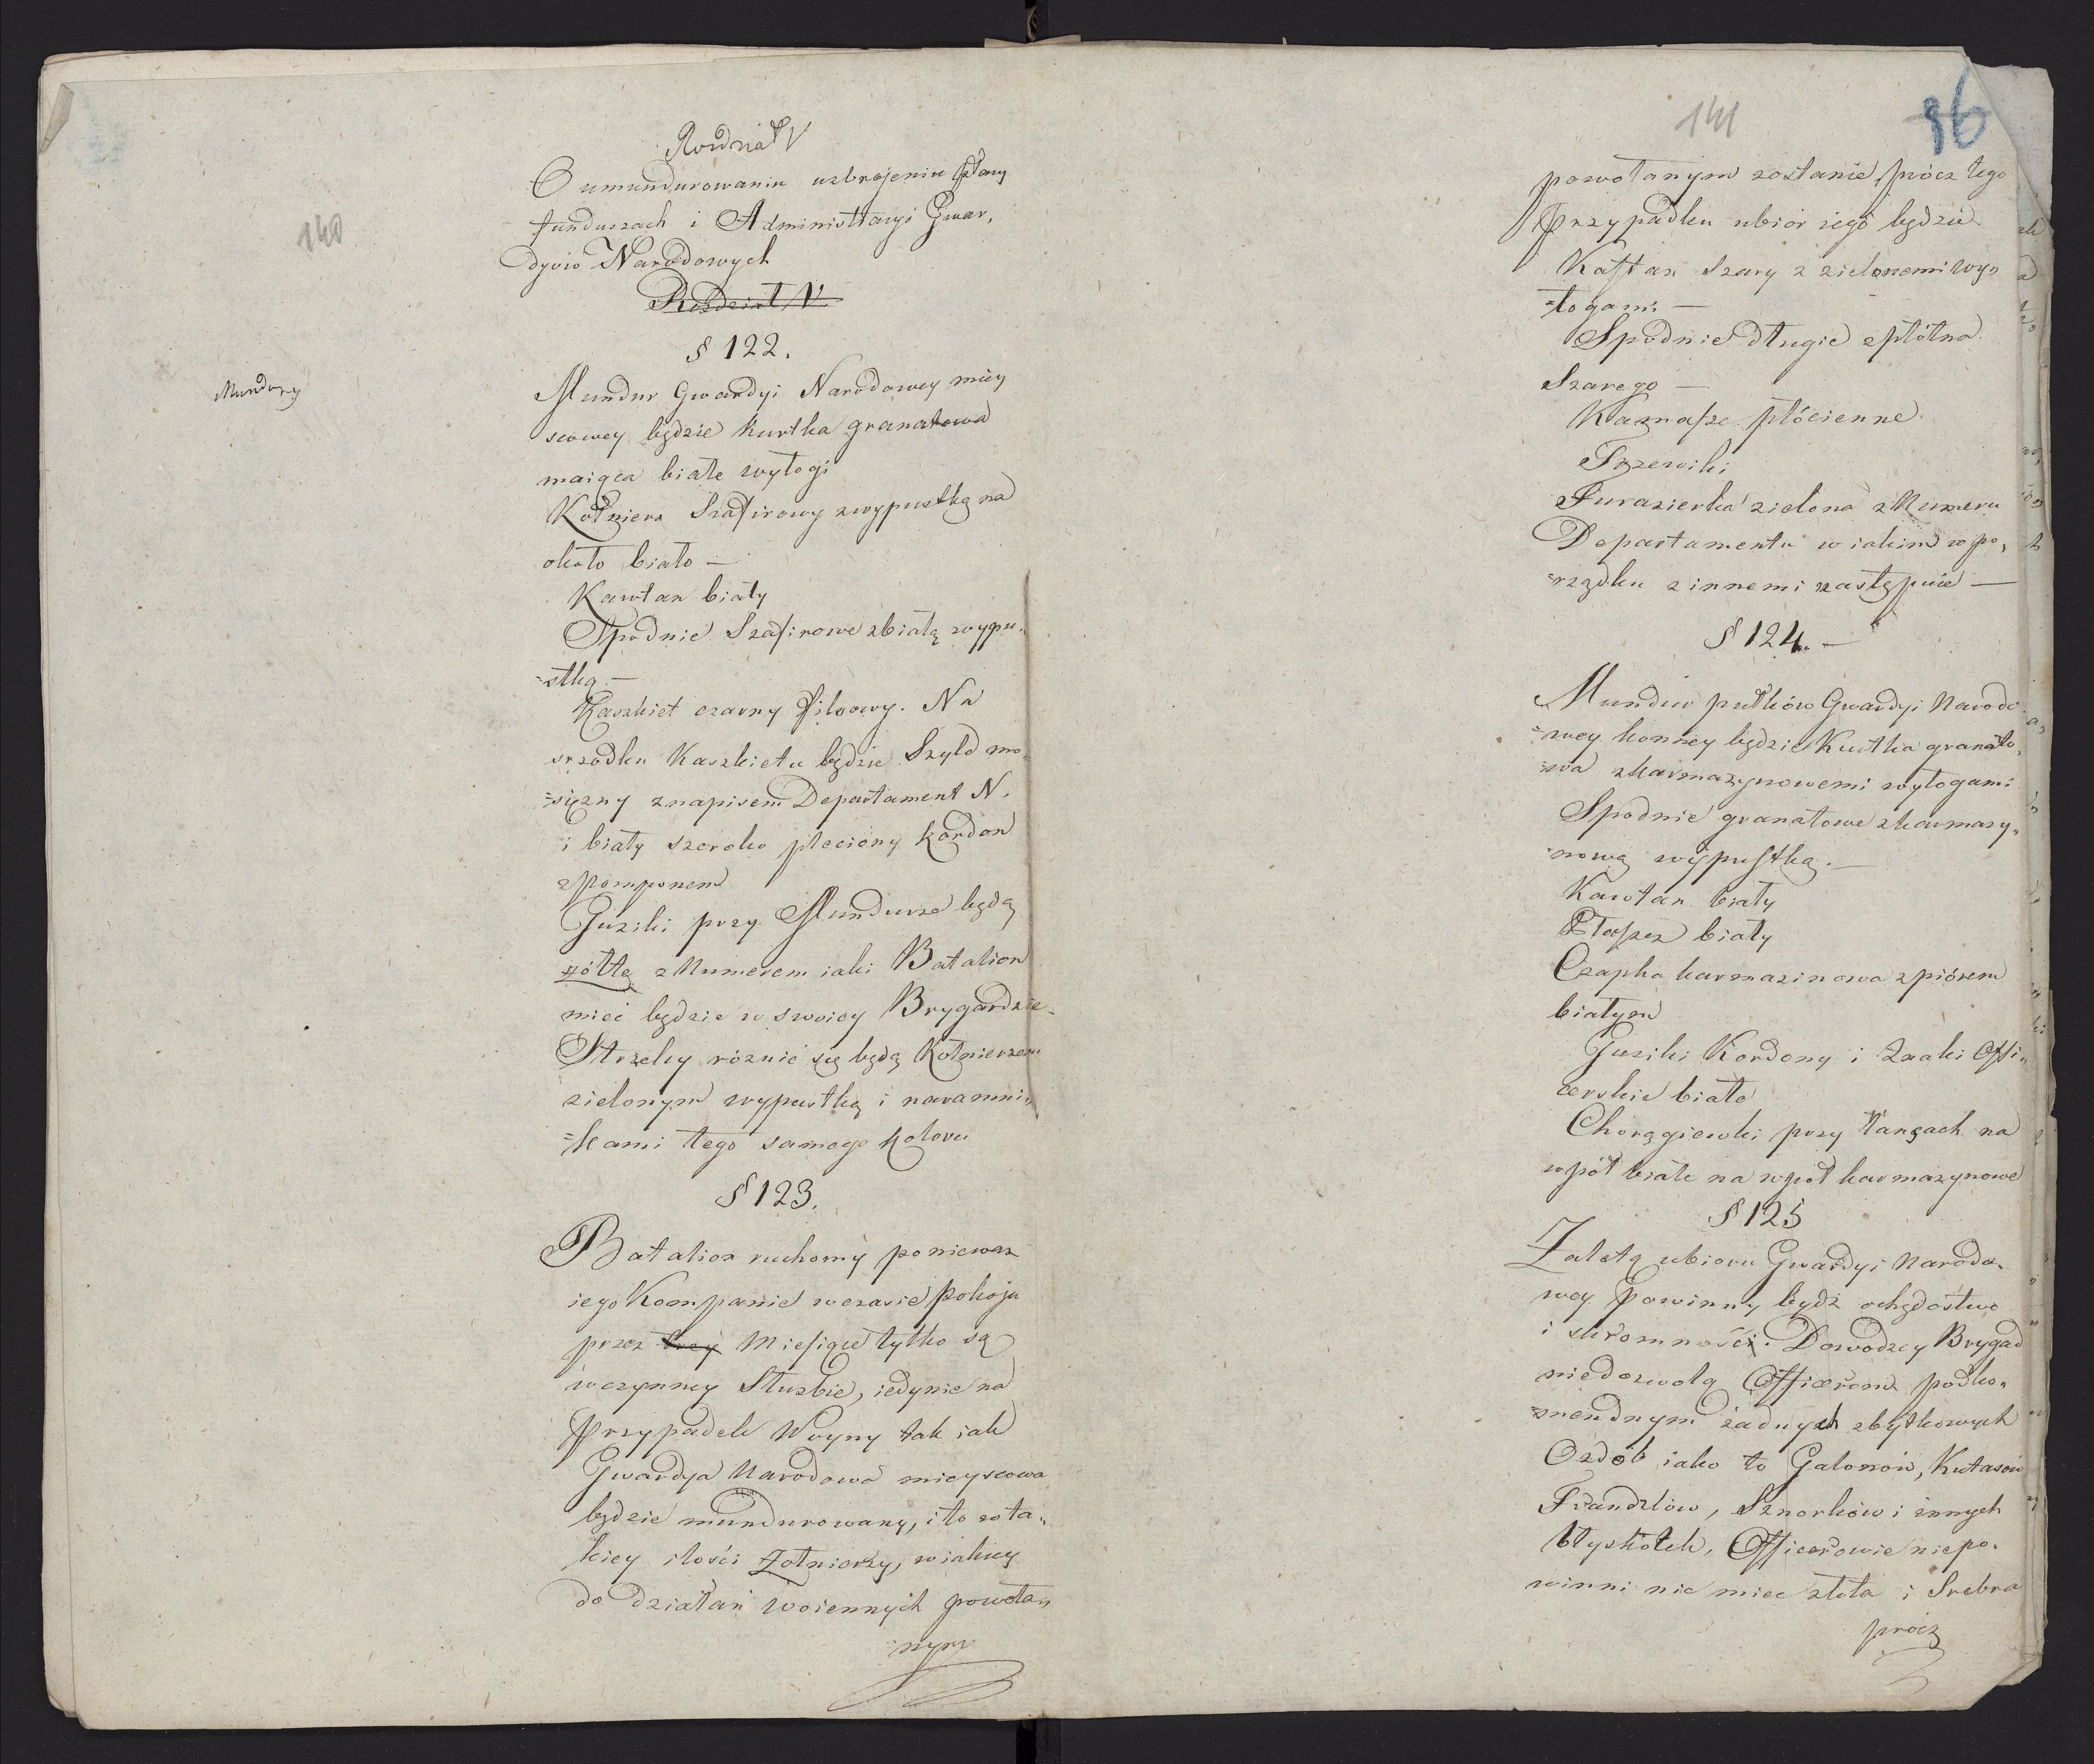 140
Rozdział V
O umundurowaniu uzbrojeniu płacy
funduszach i Administracyi Gwar,
dyiów Narodowych
Rozdział V.
§ 122.
Mundury
Mundur Gwardyi Narodowey miey
scowey będzie kurtka granatowa
maiąca białe wyłogi
Kołnierz Szafirowy z wypustką na
około biało —
Kawtan biały
Spodnie Szafirowe z białą wypu,
=stką —
Kaszkiet czarny filcowy. Na
srzodku Kaszkietu będzie Szyld mo,
=siężny z napisem Departament N.
i biały szeroko pleciony kordon
z pomponem
Guziki przy Mundurze będą
żółte z Numerem iaki Batalion
mieć będzie w swoiey Brygardzie
Strzelcy róznić się będą Kołnierzem
zielonym wypustką i naramni,
=kami tego samego koloru
§ 123.
Batalion ruchomy poniewaz
iego Kompanie w czasie pokoju
przez trzy Miesiące tylko są
w czynney Służbie, iedynie na
przypadek Woyny tak iak
Gwardya Narodowa mieyscowa
będzie mundurowany, i to w ta,
kiey ilości Żołnierzy, w iakiey
do działań woiennych powoła,
nym
141
96
powołanym zostanie, prócz tego
przypadku ubiór iego będzie
Kaftan Szary z zielonemi wy,
=łogami —
Spodnie długie z płótna
Szarego —
Kamasze płócienne
Trzewiki
Furazierka zielona z Numeru
Departamentu w iakim w po,
=rządku z innemi następuie —
§ 124. —
Mundur pułków Gwardyi Narodo
=wey konney będzie Kurtka granato,
=wa z karmazynowemi wyłogami
Spodnie granatowe z karmazy,
nową wypustką. —
Kawtan biały
Płaszcz biały
Czapka karmazinowa z piórem
białym
Guziki Kordony i Znaki Offi,
cerskie białe
Chorągiewki przy Lancach na
wpół białe na wpół karmazynowe
§ 125
Zaletą ubioru Gwardyi Narodo,
wey powinny bydź ochędostwo
i skromność. Dowodzcy Brygad
niedozwolą Officerom podko,
mendnym żadnych zbytkowych
Ozdób iako to Galonów, Kutasów
Frandzlów, Sznorków i innych
błyskotek, Officerowie niepo,
winni nic miec złota i Srebra
prócz